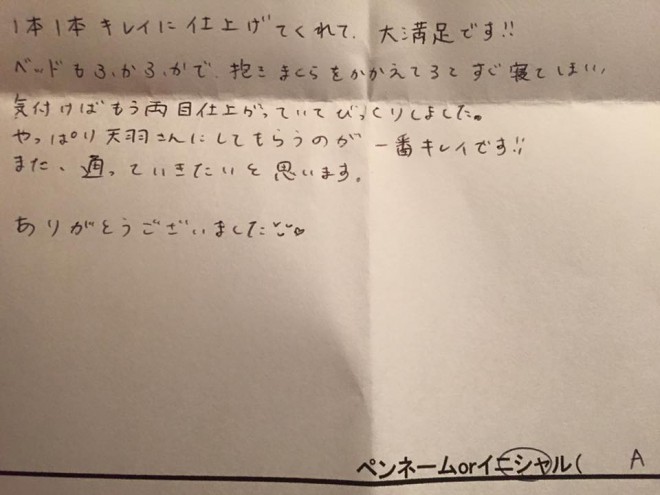 1本1本キレイに仕上げてくれて、大満足です!!
ベッドもふかふかで、抱きまくらをかかえてるとすぐ寝てしまい、
気付けばもう両目仕上がっていてびっくりしました。
やっぱり天羽さんにしてもらうのが一番キレイです!!
また、通っていきたいと思います。
ありがとうございました
ペンネームorイニシャル( A